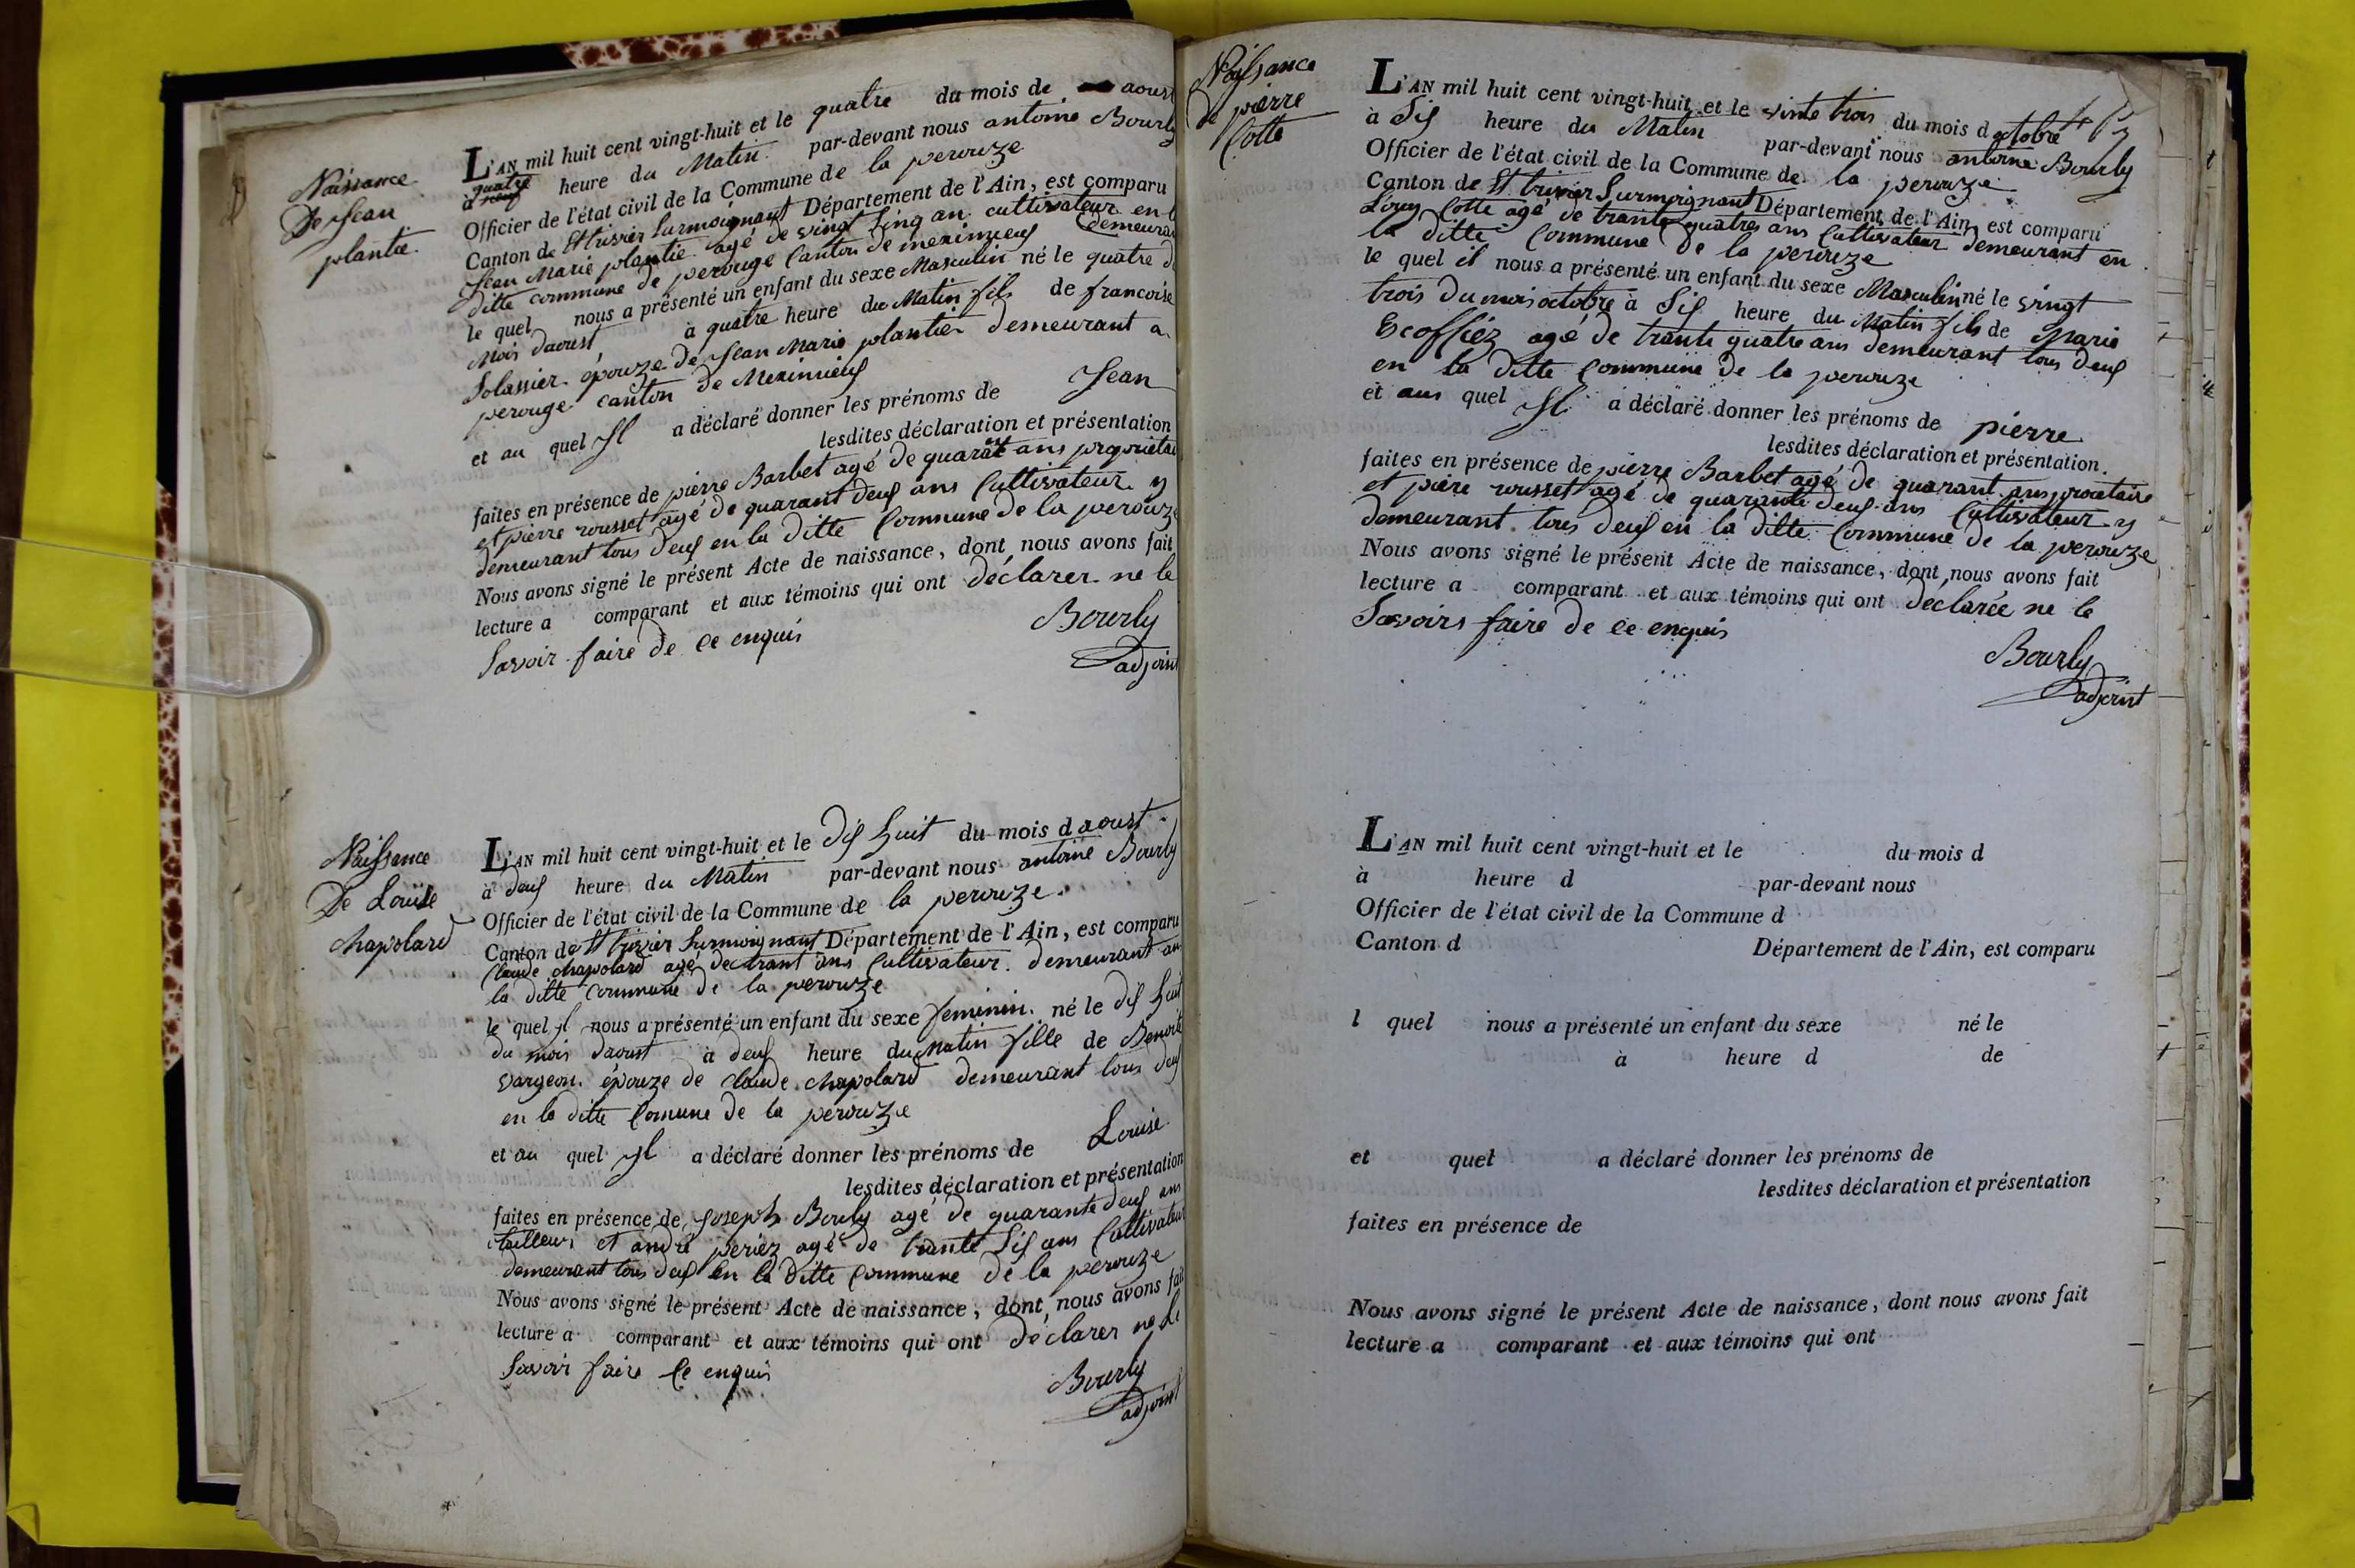 Naissance
De Jean
plantie
L'AN mil huit cent vingt-huit et le quatre du mois de aoust
à neuf quatre heure du Matin par-devant nous antoine Bourly
Officier de l'état civil de la Commune de la perouze
Canton de St trivier Surmoignant Département de l'Ain, est comparu
Jean Marie plantie agé de vingt Sinq an cultivateur demeurant en la
ditte commune de perouge Canton de meximieus
le quel nous a présenté un enfant du sexe Masculin né le quatre du
Mois daoust à quatre heure du Matin fils de francoise
Solassier épouze de Jean Marie plantier demeurant a
perouge canton de Meximieus
et au quel Jl a déclaré donner les prénoms de Jean
lesdites déclaration et présentation
faites en présence de pierre Barbet agé de quarante ans proprietaire
et pierre rousset agé de quarant deus ans Cultivateur y
demeurant tous deus en la ditte Commune de la perouze
Nous avons signé le présent Acte de naissance, dont nous avons fait
lecture a comparant et aux témoins qui ont déclarer ne le
Savoir faire de ce enquis
Bourly
adjoint
Naissance
De Louise
chapolard
L'AN mil huit cent vingt-huit et le Dis huit du mois d aoust
à deus heure du Matin par-devant nous antoine Bourly
Officier de l'état civil de la Commune de la perouze
Canton de St trivier Surmoignant Département de l'Ain, est comparu
Claude chapolard agé de trant ans Cultivateur demeurant an
la ditte Commune de la perouze
le quel Jl nous a présenté un enfant du sexe feminin né le dis huit
du mois daoust à deus heure du Matin fille de Benoite
vargeon épouze de claude chapolard demeurant tous deus
en la ditte Comune de la perouze
et au quel Jl a déclaré donner les prénoms de Louise
lesdites déclaration et présentation
faites en présence de Joseph Bourly agé de quarante deus ans
tailleur et andré periez agé de trante Sis ans Cultivateur
demeurant tous deus en la ditte Commune de la perouze
Nous avons signé le présent Acte de naissance, dont nous avons fait
lecture a comparant et aux témoins qui ont déclarer ne le
Savoir faire Ce enquis
Bourly
adjoint
Naissance
de pierre
Cotte
L'AN mil huit cent vingt-huit et le vinte trois du mois d octobre
à Sis heure du Matin par-devant nous antoine Bourly
Officier de l'état civil de la Commune de la perouze
Canton de St trivier Surmoignant Département de l'Ain, est comparu
Louy Cotte agé de trante quatres ans Cultivateur demeurant en
la ditte Commune de la perouze
le quel il nous a présenté un enfant du sexe Masculin né le vingt
trois du mois octobre à Sis heure du Matin fils de Marie
Escoffiez agé de trante quatre ans demeurant tous deus
en la ditte Commune de la perouze
et aus quel Jl a déclaré donner les prénoms de pierre
lesdites déclaration et présentation.
faites en présence de pierre Barbet agé de quarant ans proietaire
et piere rousset agé de quarante deus ans Cultivateur y
demeurant tous deus en la ditte Commune de la perouze
Nous avons signé le présent Acte de naissance, dont nous avons fait
lecture a comparant et aux témoins qui ont déclarée ne le
Savoirs faire de ce enquis
Bourly
adjoint
L'AN mil huit cent vingt-huit et le du mois d
à heure d par-devant nous
Officier de l'état civil de la Commune d
Canton d Département de l'Ain, est comparu
l quel nous a présenté un enfant du sexe né le
à heure d de
et quel a déclaré donner les prénoms de
lesdites déclaration et présentation
faites en présence de
Nous avons signé le présent Acte de naissance, dont nous avons fait
lecture a comparant et aux témoins qui ont